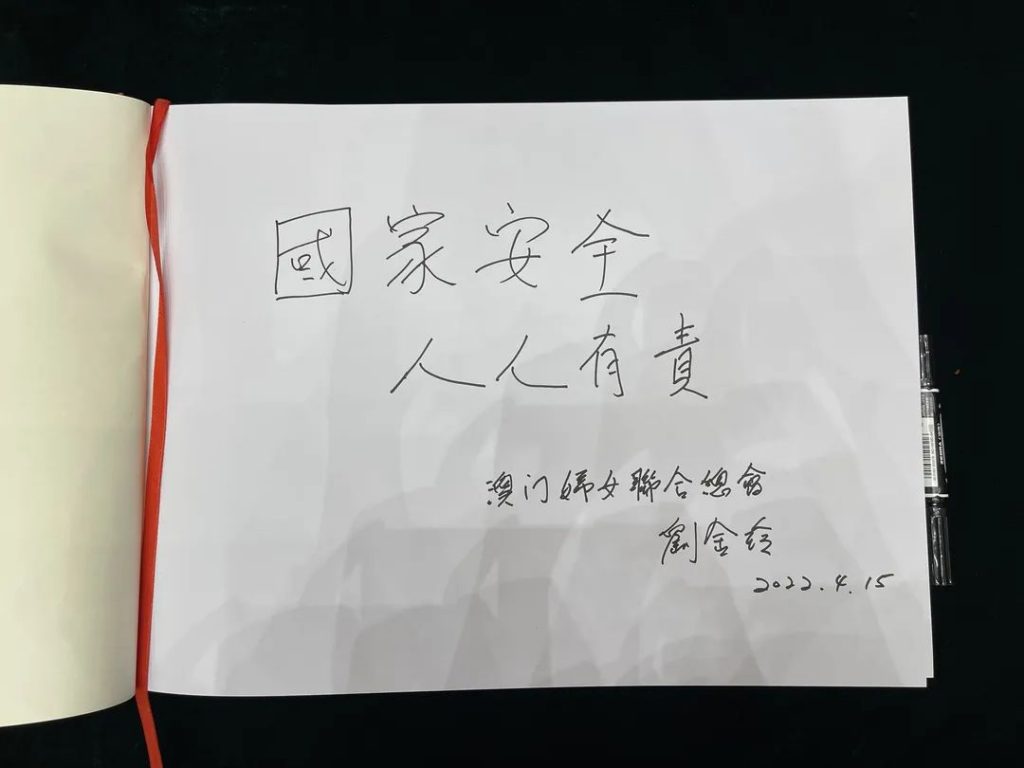 國家安全
人人有責
澳门婦女聯合總會
劉金玲
2022.4.15